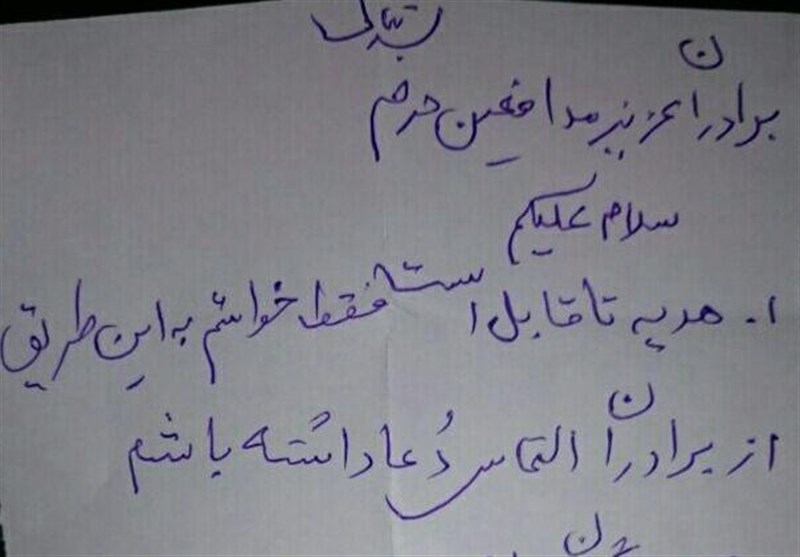 برادران عزیز مدافعین حرم
سلام علیکم
۱. هدیه ناقابل است فقط خواستم به این طریق
از برادران التماس دُعا داشته باشم